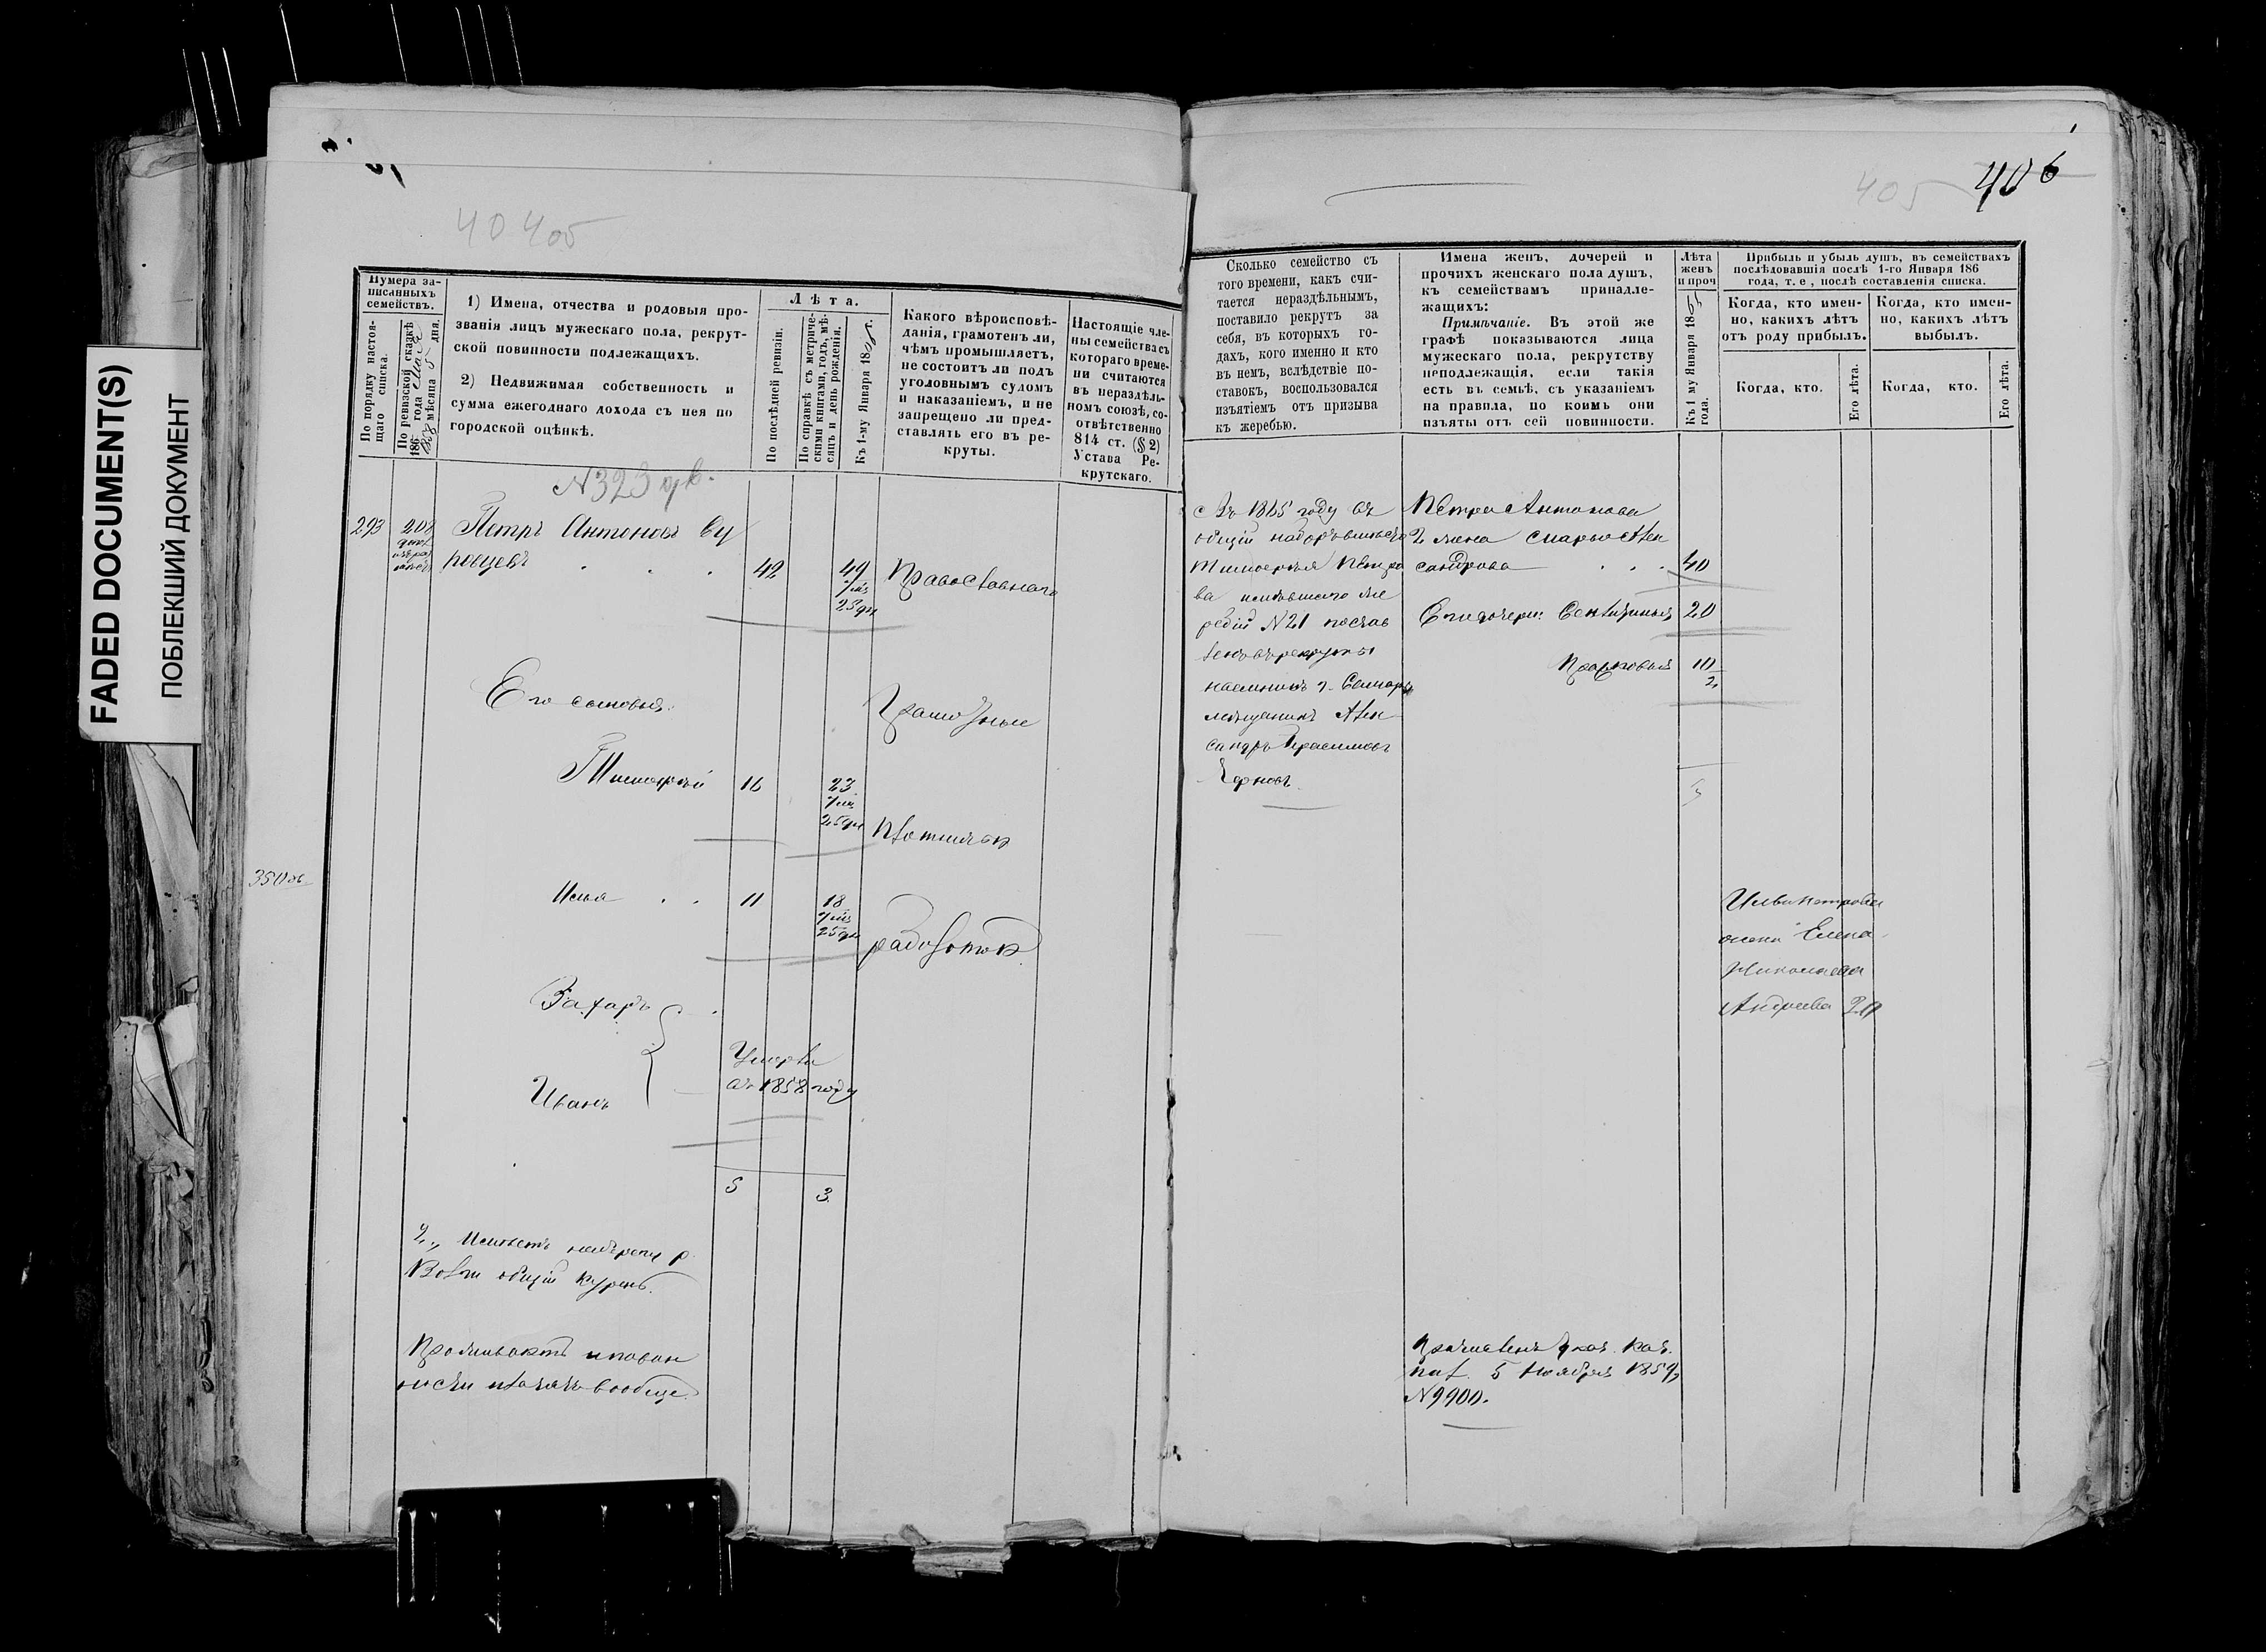 FADED DOCUMENT(S)
ПОБЛЕКШИЙ ДОКУМЕНТ
40 405
405
406
Нумера за-
писанныхъ
семействъ.
По порядку настоя-
щаго списка.
По ревизской сказкѣ
186 года
мѣсяца 5 дня.
1) Имена, отчества и родовыя про-
званія лицъ мужескаго пола, рекрут-
ской повинности подлежащихъ.
2) Недвижимая собственность и
сумма ежегоднаго дохода съ нея по
городской оцѣнкѣ.
Лѣта.
По послѣдней ревизіи.
По справкѣ съ метриче-
скими книгами, годъ, мѣ-
сяцъ и день рожденія.
Къ 1-му Января 1865 г.
Какого вѣроисповѣ-
данія, грамотенъ ли,
чѣмъ промышляетъ,
не состоитъ ли подъ
уголовнымъ судомъ
и наказаніемъ, и не
запрещено ли пред-
ставлять его въ ре-
круты.
Настоящіе чле-
ны семейства съ
котораго време-
ни считаются
въ нераздѣль-
номъ союзѣ, со-
отвѣтственно
814 ст. (§ 2)
Устава Ре-
крутскаго.
N 323
293
208
Петръ Антоновъ Бу
42
49
7 мѣ
25 дн
Православнаго
Его сыновья:
Грамотные
Тимофей
16
23
7 мѣ
25 дн
350
Илья
11
18
7 мѣ
25 дн
Захаръ
Иванъ
Умерли
въ 1858 году
5
3.
2., Имѣетъ р.
Волги общій курень.
Проживаютъ и повин
ности вообще.
Сколько семейство съ
того времени, какъ счи-
тается нераздѣльнымъ,
поставило рекрутъ за
себя, въ которыхъ го-
дахъ, кого именно и кто
въ немъ, вслѣдствіе по-
ставокъ, воспользовался
изъятіемъ отъ призыва
къ жеребью.
Имена женъ, дочерей и
прочихъ женскаго пола душъ,
къ семействамъ принадле-
жащихъ:
Примѣчаніе. Въ этой же
графѣ показываются лица
мужескаго пола, рекрутству
неподлежащія, если такія
есть въ семьѣ, съ указаніемъ
на правила, по коимъ они
изъяты отъ сей повинности.
Лѣта
женъ
и проч
Къ 1 му Января 1865
года.
Прибыль и убыль душъ, въ семействахъ
послѣдовавшія послѣ 1-го Января 186
года, т. е , послѣ составленія списка.
Когда, кто имен-
но, какихъ лѣтъ
отъ роду прибылъ.
Когда, кто имен-
но, какихъ лѣтъ
выбылъ.
Когда, кто.
Его лѣта.
Когда, кто.
Его лѣта.
Въ 1865 году въ
общій наборъ
Тимофея Петро
ва имѣвшаго же
ребій N 21 постав
ленъ въ рекруты
наемникъ г. Самары
мѣщанинъ Алек
сандръ Герасимовъ
Черновъ.
Петра Антонова
2 жена Марья Алек
сандрова
40
Его дочери:
20
Прасковья
10
2
3
Ильи Петрова
жена Елена
Николаева
Андреева 20
Причисленъ каз.
пал. 5 Ноября 1857,
N 9900.